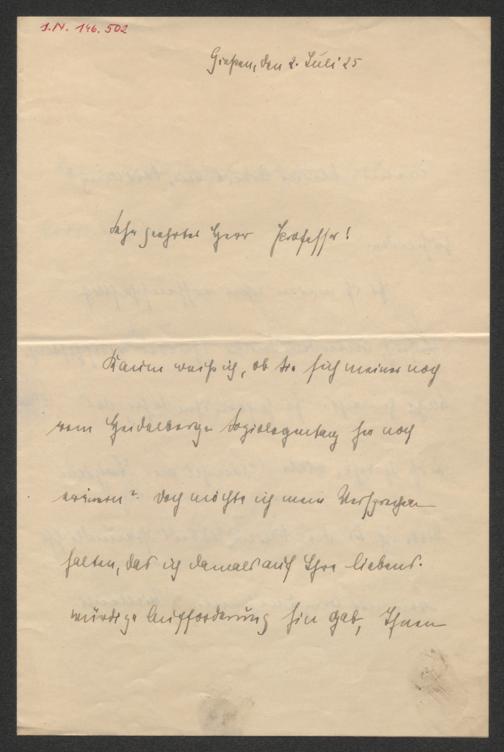 I.N. 146.502
Gießen, den 2. Juli 25
Sehr geehrter Herr Professor!
Kaum weiß ich, ob Sie sich meiner noch
vom Heidelberger Soziologentag her noch
erinnern? Doch möchte ich mein Versprechen
halten, das ich damals auf Ihre liebens-
würdige Aufforderung hin gab, Ihnen